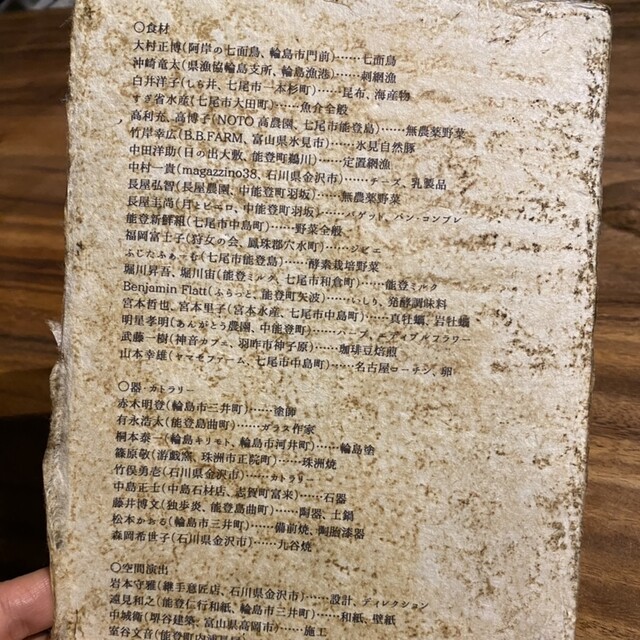 〇食材
大村正博(阿岸の七面鳥、輪島市門前)……七面鳥
沖崎竜太(県漁協輪島支所、輪島漁港)……刺網漁
白井洋子(しら井、七尾市一本杉町)……昆布、海産物
すぎ省水産(七尾市大田町)……魚食全般
高利充、高博子(NOTO 高農園、七尾市能登島)……無農薬野菜
竹岸幸広(B.B.FARM、富山県氷見市)……氷見自然豚
中田洋助(日の出大敷、能登町鵜川)……定置網漁
中村一貴(magazzino38、石川県金沢市)……チーズ、乳製品
長屋弘智(長屋農園、中能登町羽坂)……無農薬野菜
長屋圭尚(月とピエロ、中能登町羽坂)……バゲット、パン・コンプレ
能登新鮮組(七尾市中島町)……野菜全般
福岡富士子(狩女の会、鳳珠郡穴水町)……ジビエ
ふじたふぁーむ(七尾市能登島)……酵素栽培野菜
堀川昇吾、堀川宙(能登ミルク、七尾市和倉町)……能登ミルク
Benjamin Flatt(ふらっと、能登町矢波)……いしり、発酵調味料
宮本哲也、宮本里子(宮本水産、七尾市中島町)……真牡蠣、岩牡蠣
明星孝明(あんがとう農園、中能登町)……ハーブ、エディブルフラワー
武藤一樹(神音カフェ、羽咋市神子原)……珈琲豆焙煎
山本幸雄(ヤマモファーム、七尾市中島町)……名古屋コーチン、卵
〇器・カトラリー
赤木明登(輪島市三井町)……塗師
有永浩太(能登島曲町)……ガラス作家
桐本泰一(輪島キリモト、輪島市河井町)……輪島塗
篠原敬(游戯窯、珠洲市正院町)……珠洲焼
竹俣勇壱(石川県金沢市)……カトラリー
中島正士(中島石材店、志賀町富来)……石器
藤井博文(独歩炎、能登島曲町)……陶器、土鍋
松本かおる(輪島市三井町)……備前焼、陶胎漆器
森岡希世子(石川県金沢市)……九谷焼
〇空間演出
岩本守雅(継手意匠店、石川県金沢市)……設計、ディレクション
遠見和之(能登仁行和紙、輪島市三井町)……和紙、壁紙
中城衛(堺谷建築、富山県高岡市)……施工
室谷文音(能登町内浦